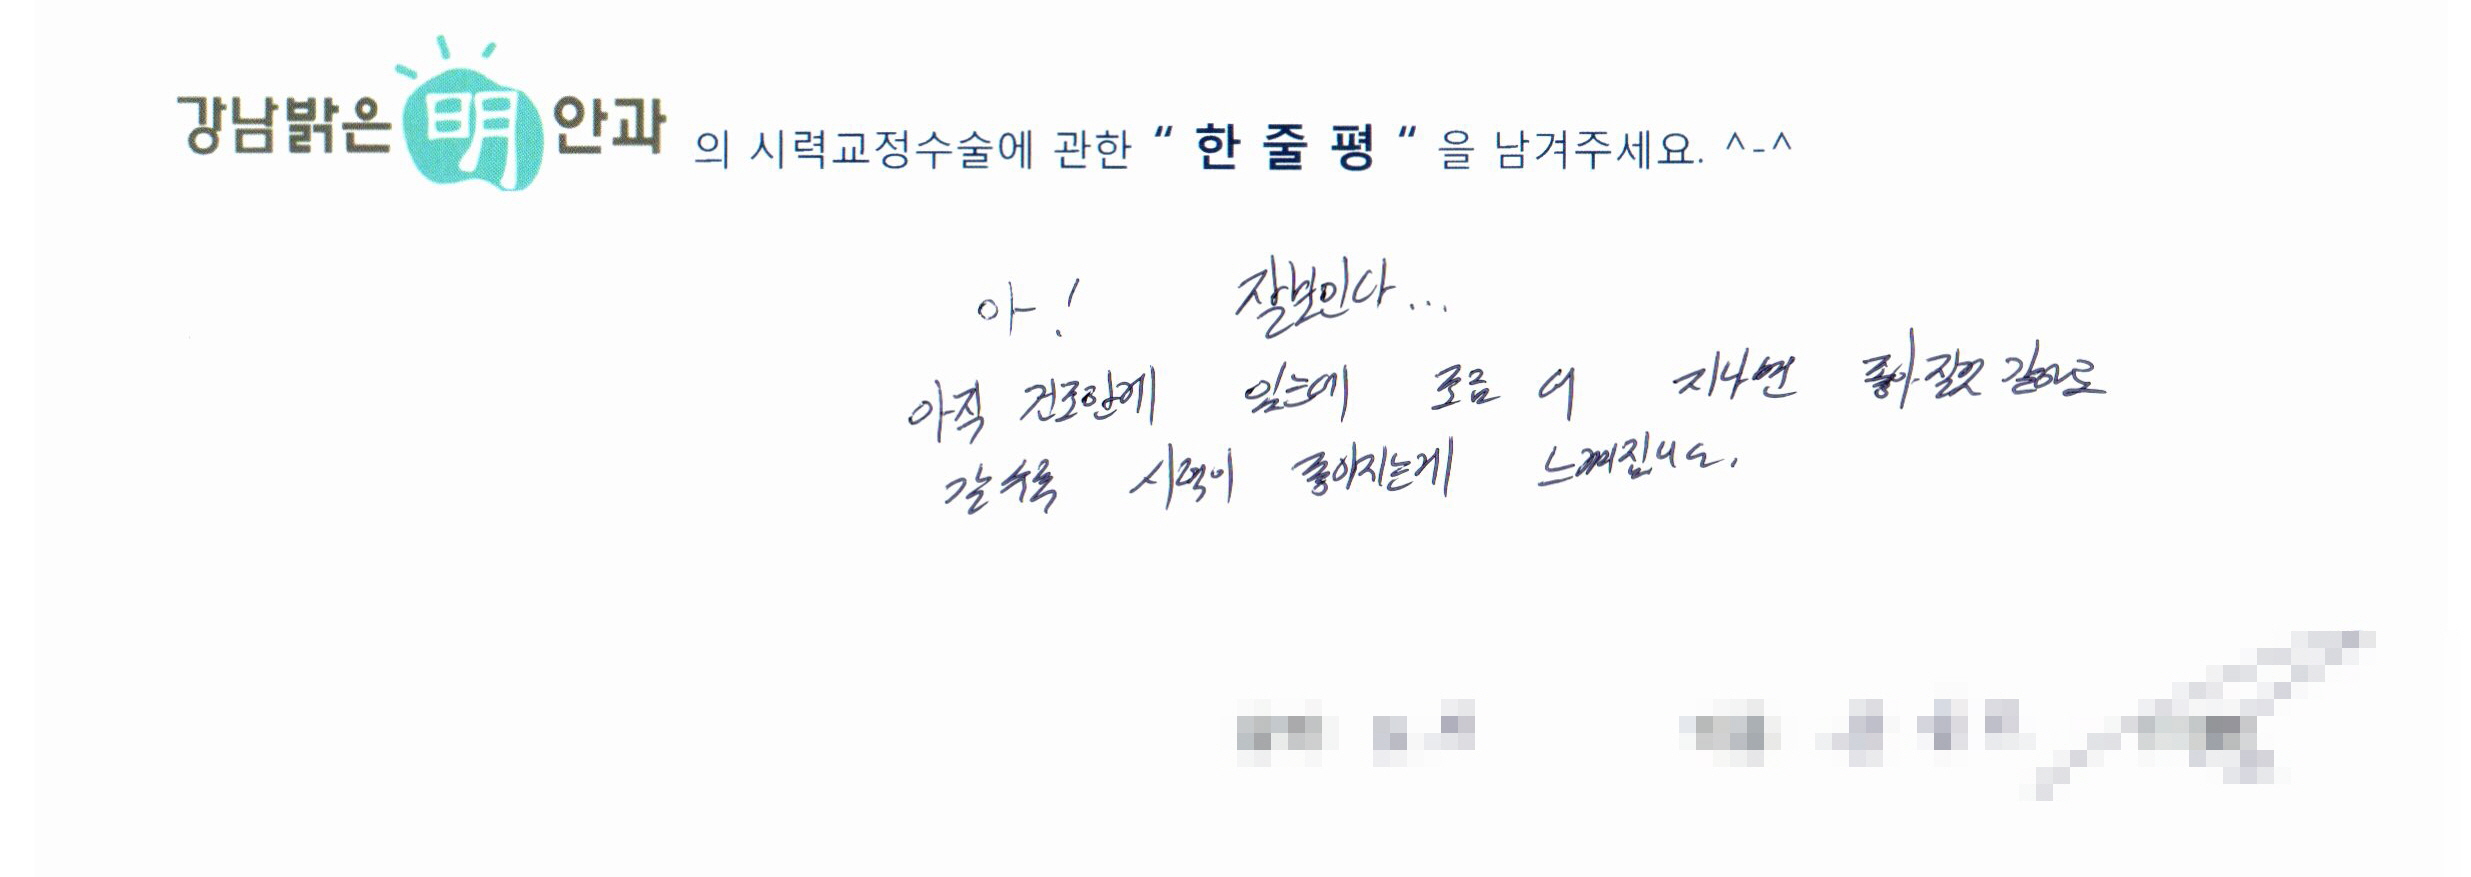 강남밝은明안과 의 시력교정수술에 관한 “ 한 줄 평 “ 을 남겨주세요. ^-^
아! 잘보인다...
아직 건조함에 있는데 조금 더 지나면 좋아질것 같아요
갈수록 시력이 좋아지는게 느껴집니다.